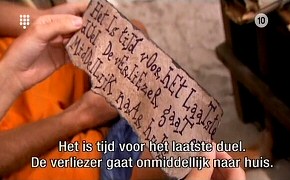 10
Het is tijd voor het laatste
duel. De verliezer gaat
onmiddellijk naar huis.
Het is tijd voor het laatste duel.
De verliezer gaat onmiddellijk naar huis.